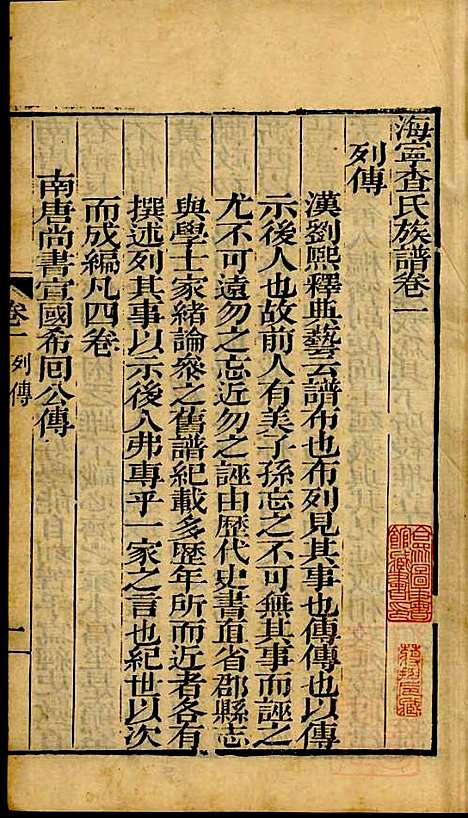 海寧查氏族譜卷一
列傳
漢劉熙釋典藝云譜布也布列見其事也傳傳也以傳
示後人也故前人有美子孫忘之不可無其事而誣之
尤不可遠勿之忘近勿之誣由歷代史書直省郡縣志
與學士家緒論參之舊譜紀載多歷年所而近者各有
撰述列其事以示後人弗專乎一家之言也紀世以次
而成編凡四卷
南唐尚書宣國希回公傳
卷一 列傳
一
合眾圖書館藏書印